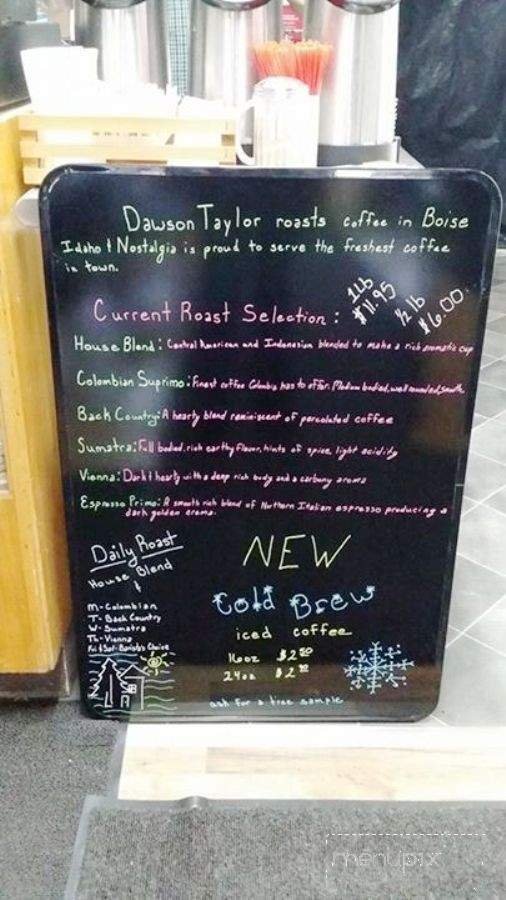 Dawson Taylor roasts coffee in Boise
Idaho & Nostalgia is proud to serve the freshest coffee
in town.
1lb
$11.95
½ lb
$6.00
Current Roast Selection:
House Blend: Central American and Indonesian blended to make a rich aromatic cup
Colombian Supremo: Finest coffee Colombia has to offer. Medium bodied, well rounded, smooth.
Back Country: A hearty blend reminiscent of percolated coffee
Sumatra: Full bodied, rich earthy flavor, hints of spice, light acidity
Vienna: Dark & hearty with a deep rich body and a carbony aroma
Espresso Primo: A smooth rich blend of Northern Italian espresso producing a
dark golden crema.
Daily Roast
House Blend
&
M-Colombian
T-Back Country
W-Sumatra
Th-Vienna
Fri & Sat-Barista's Choice
NEW
Cold Brew
iced coffee
16oz $2
24oz $2
ask for a free sample
menupix